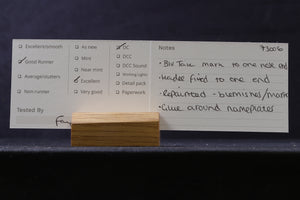 Excellent/smooth
Good Runner
Average/stutters
Non runner
Tested By
As new
Mint
Near mint
Excellent
Very good
DC
DCC
DCC Sound
Working Lights
Detail pack
Paperwork
Notes 73006
• Blu Tack mark to one side end
• Header fixed to one end
• Repainted - blemishes/mark
• Glue around nameplates